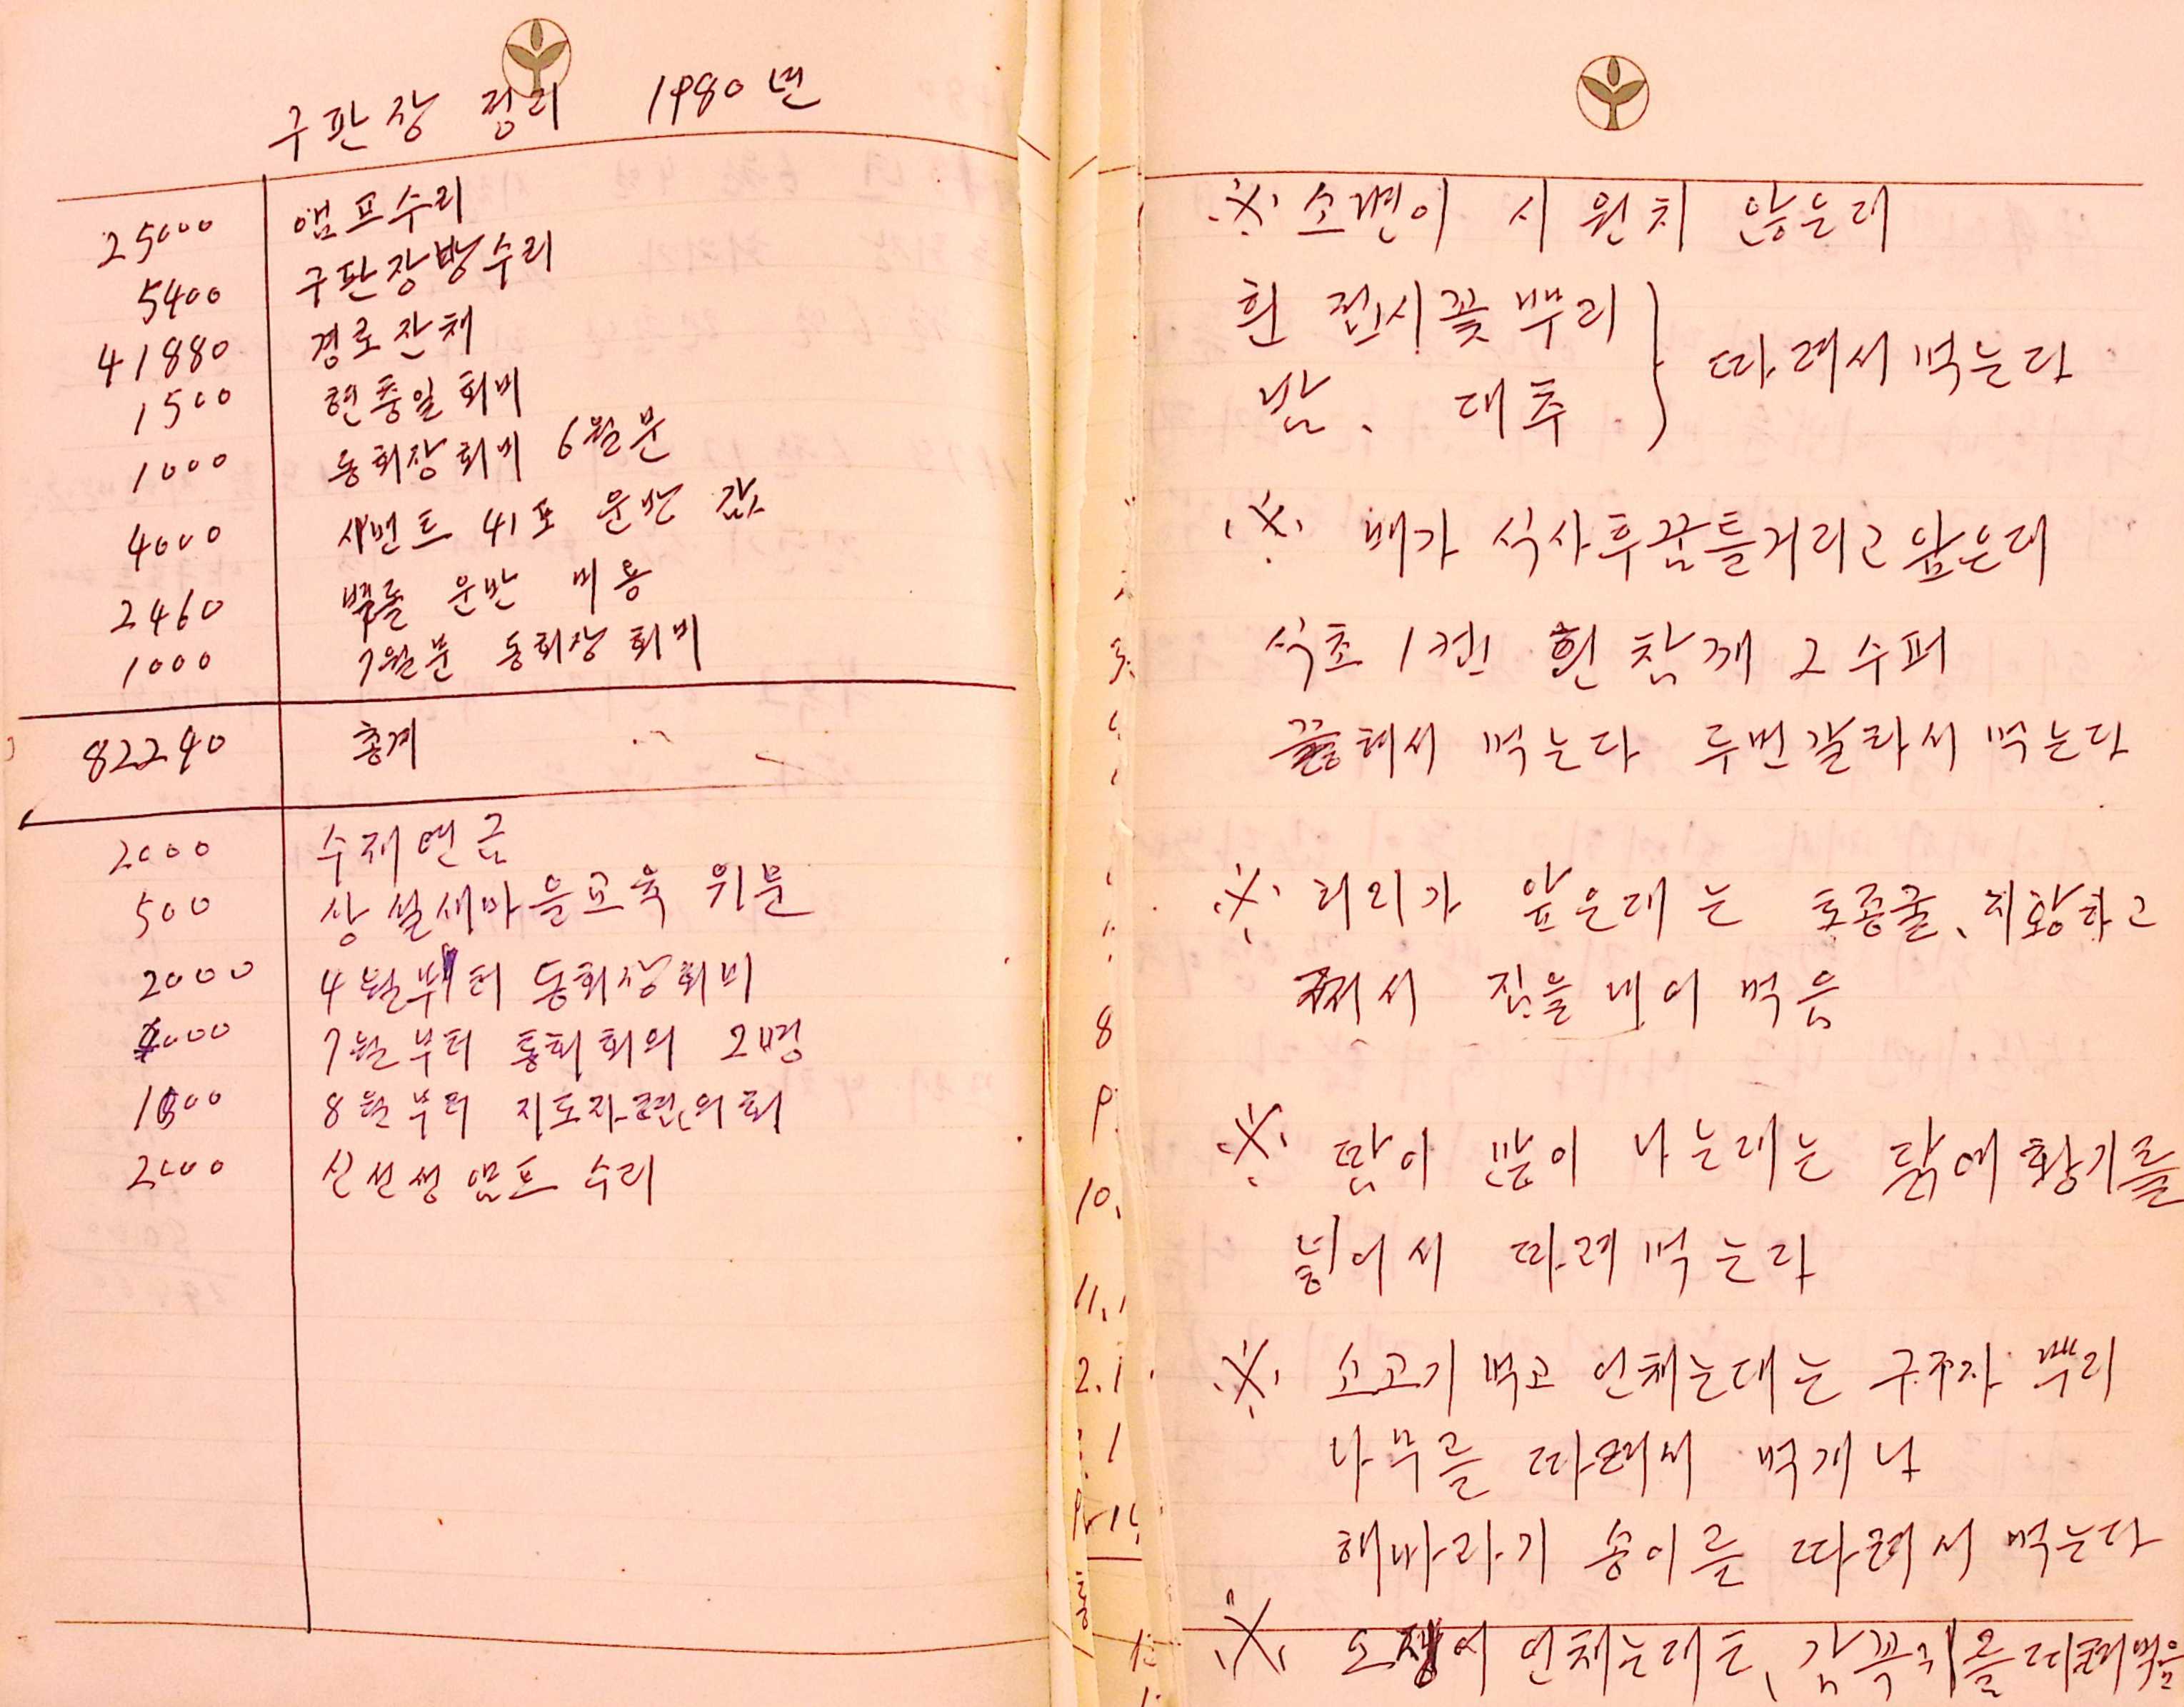 구판장 정리 1980년
25000 앰프수리
5400 구판장방수리
41880 경로잔채
1500 현충일 회비
1000 동회장회비 6월분
4000 시멘트 41포 운반 값
2460 벽돌 운반 비용
1000 7월분 동회장 회비
82240 총계
2000 수재연금
500 상설새마을교육 위문
2000 4월부터 동회장회비
000 7월부터 통회회의 2명
8월부터 지도자 회
2000 신선생 앰프 수리
8
9.
10.
11.
2.1
※ 소변이 시원치 않은데
흰 접시꽃 뿌리
밤. 대추 } 따려서 먹는다
※ 배가 식사후꿈틀거리고앞은데
식초 1컵 흰 참깨 2 수퍼
해서 먹는다 두번갈라서 먹는다
※ 허리가 앞은데는 토종꿀, 지황하고
쩌서 집을내어 먹음
※ 땀이 많이 나는데는 닭에황기를
넣어서 따려먹는다
※ 소고기 먹고 언체는대는 구주자 뿌리
나무를 따려서 먹게나
해바라기 송이를 따려서 먹는다
※ 언체는데는, 감꼭지를 따려먹음